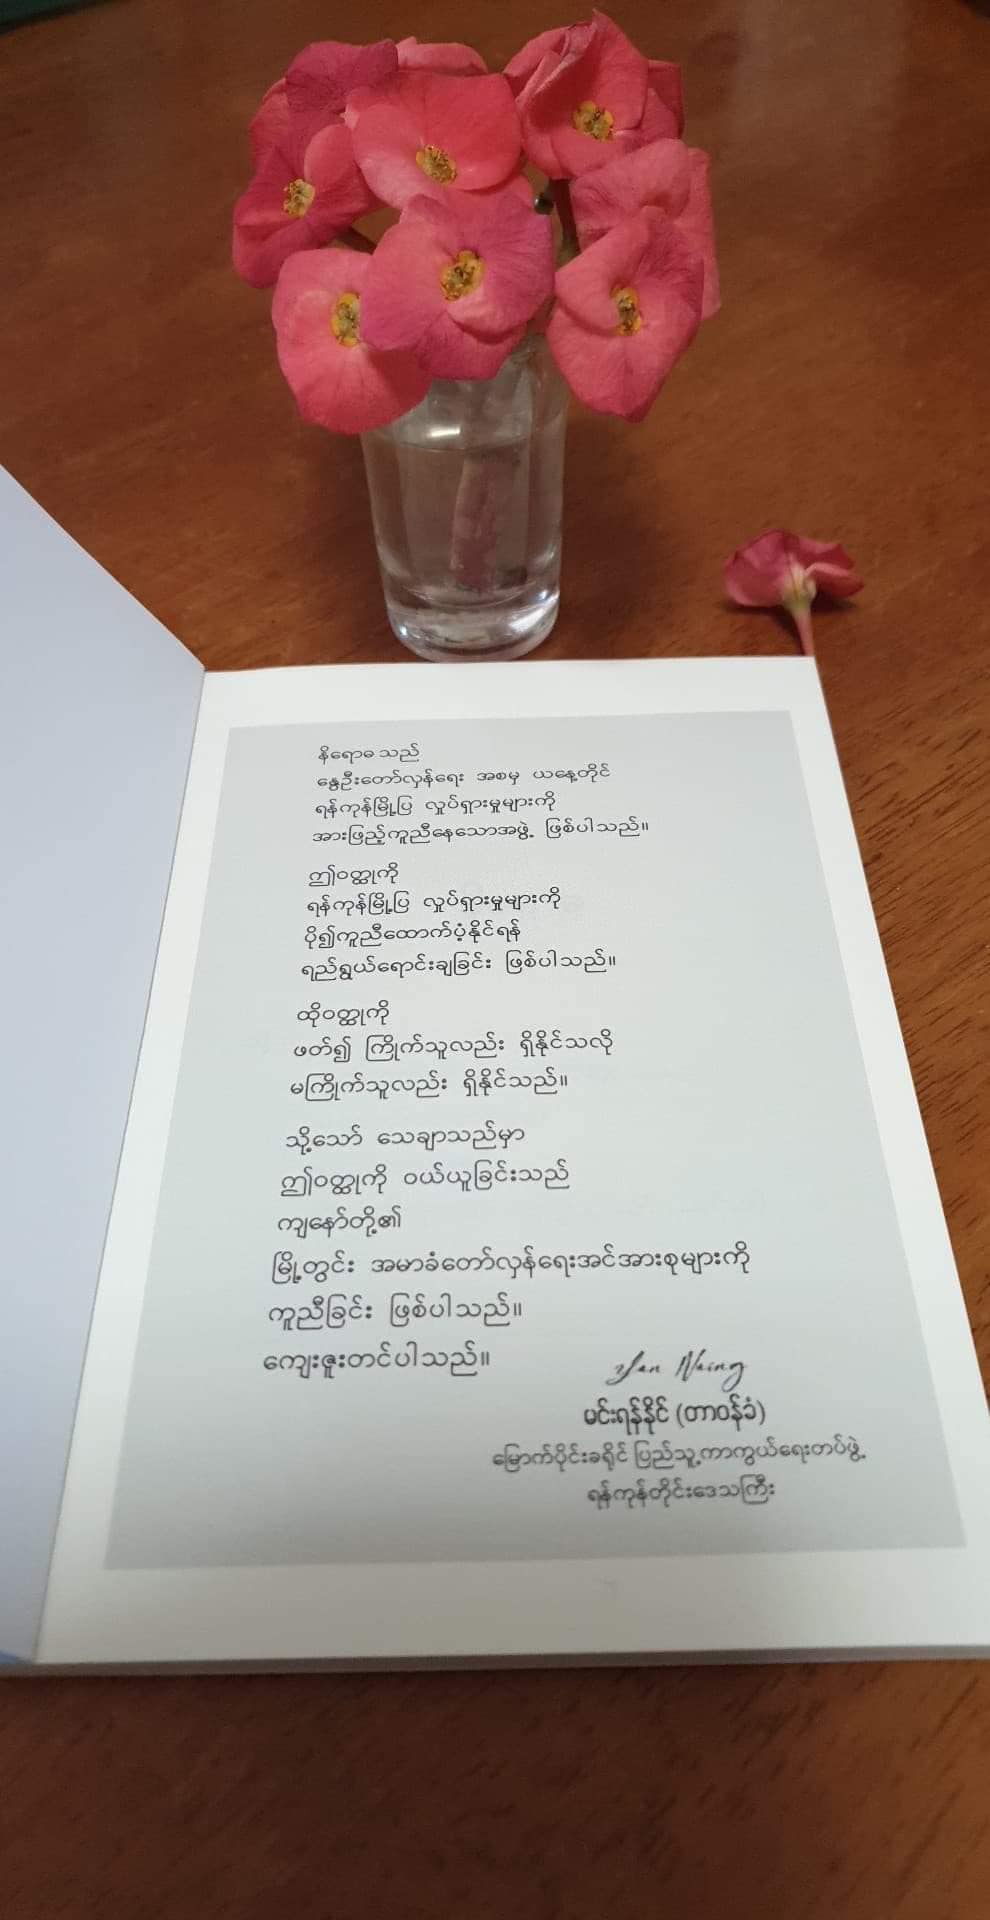 နိရောဓ သည်
နွေဦးတော်လှန်ရေး အစမှ ယနေ့တိုင်
ရန်ကုန်မြို့ပြ လှုပ်ရှားမှုများကို
အားဖြည့်ကူညီနေသောအဖွဲ့ ဖြစ်ပါသည်။
ဤဝတ္ထုကို
ရန်ကုန်မြို့ပြ လှုပ်ရှားမှုများကို
ပို၍ကူညီထောက်ပံ့နိုင်ရန်
ရည်ရွယ်ရောင်းချခြင်း ဖြစ်ပါသည်။
ထိုဝတ္ထုကို
ဖတ်၍ ကြိုက်သူလည်း ရှိနိုင်သလို
မကြိုက်သူလည်း ရှိနိုင်သည်။
သို့သော် သေချာသည်မှာ
ဤဝတ္ထုကို ဝယ်ယူခြင်းသည်
ကျနော်တို့၏
မြို့တွင်း အမာခံတော်လှန်ရေးအင်အားစုများကို
ကူညီခြင်း ဖြစ်ပါသည်။
ကျေးဇူးတင်ပါသည်။
Yan Naing
မင်းရန်နိုင် (တာဝန်ခံ)
မြောက်ပိုင်းခရိုင် ပြည်သူ့ကာကွယ်ရေးတပ်ဖွဲ့
ရန်ကုန်တိုင်းဒေသကြီး